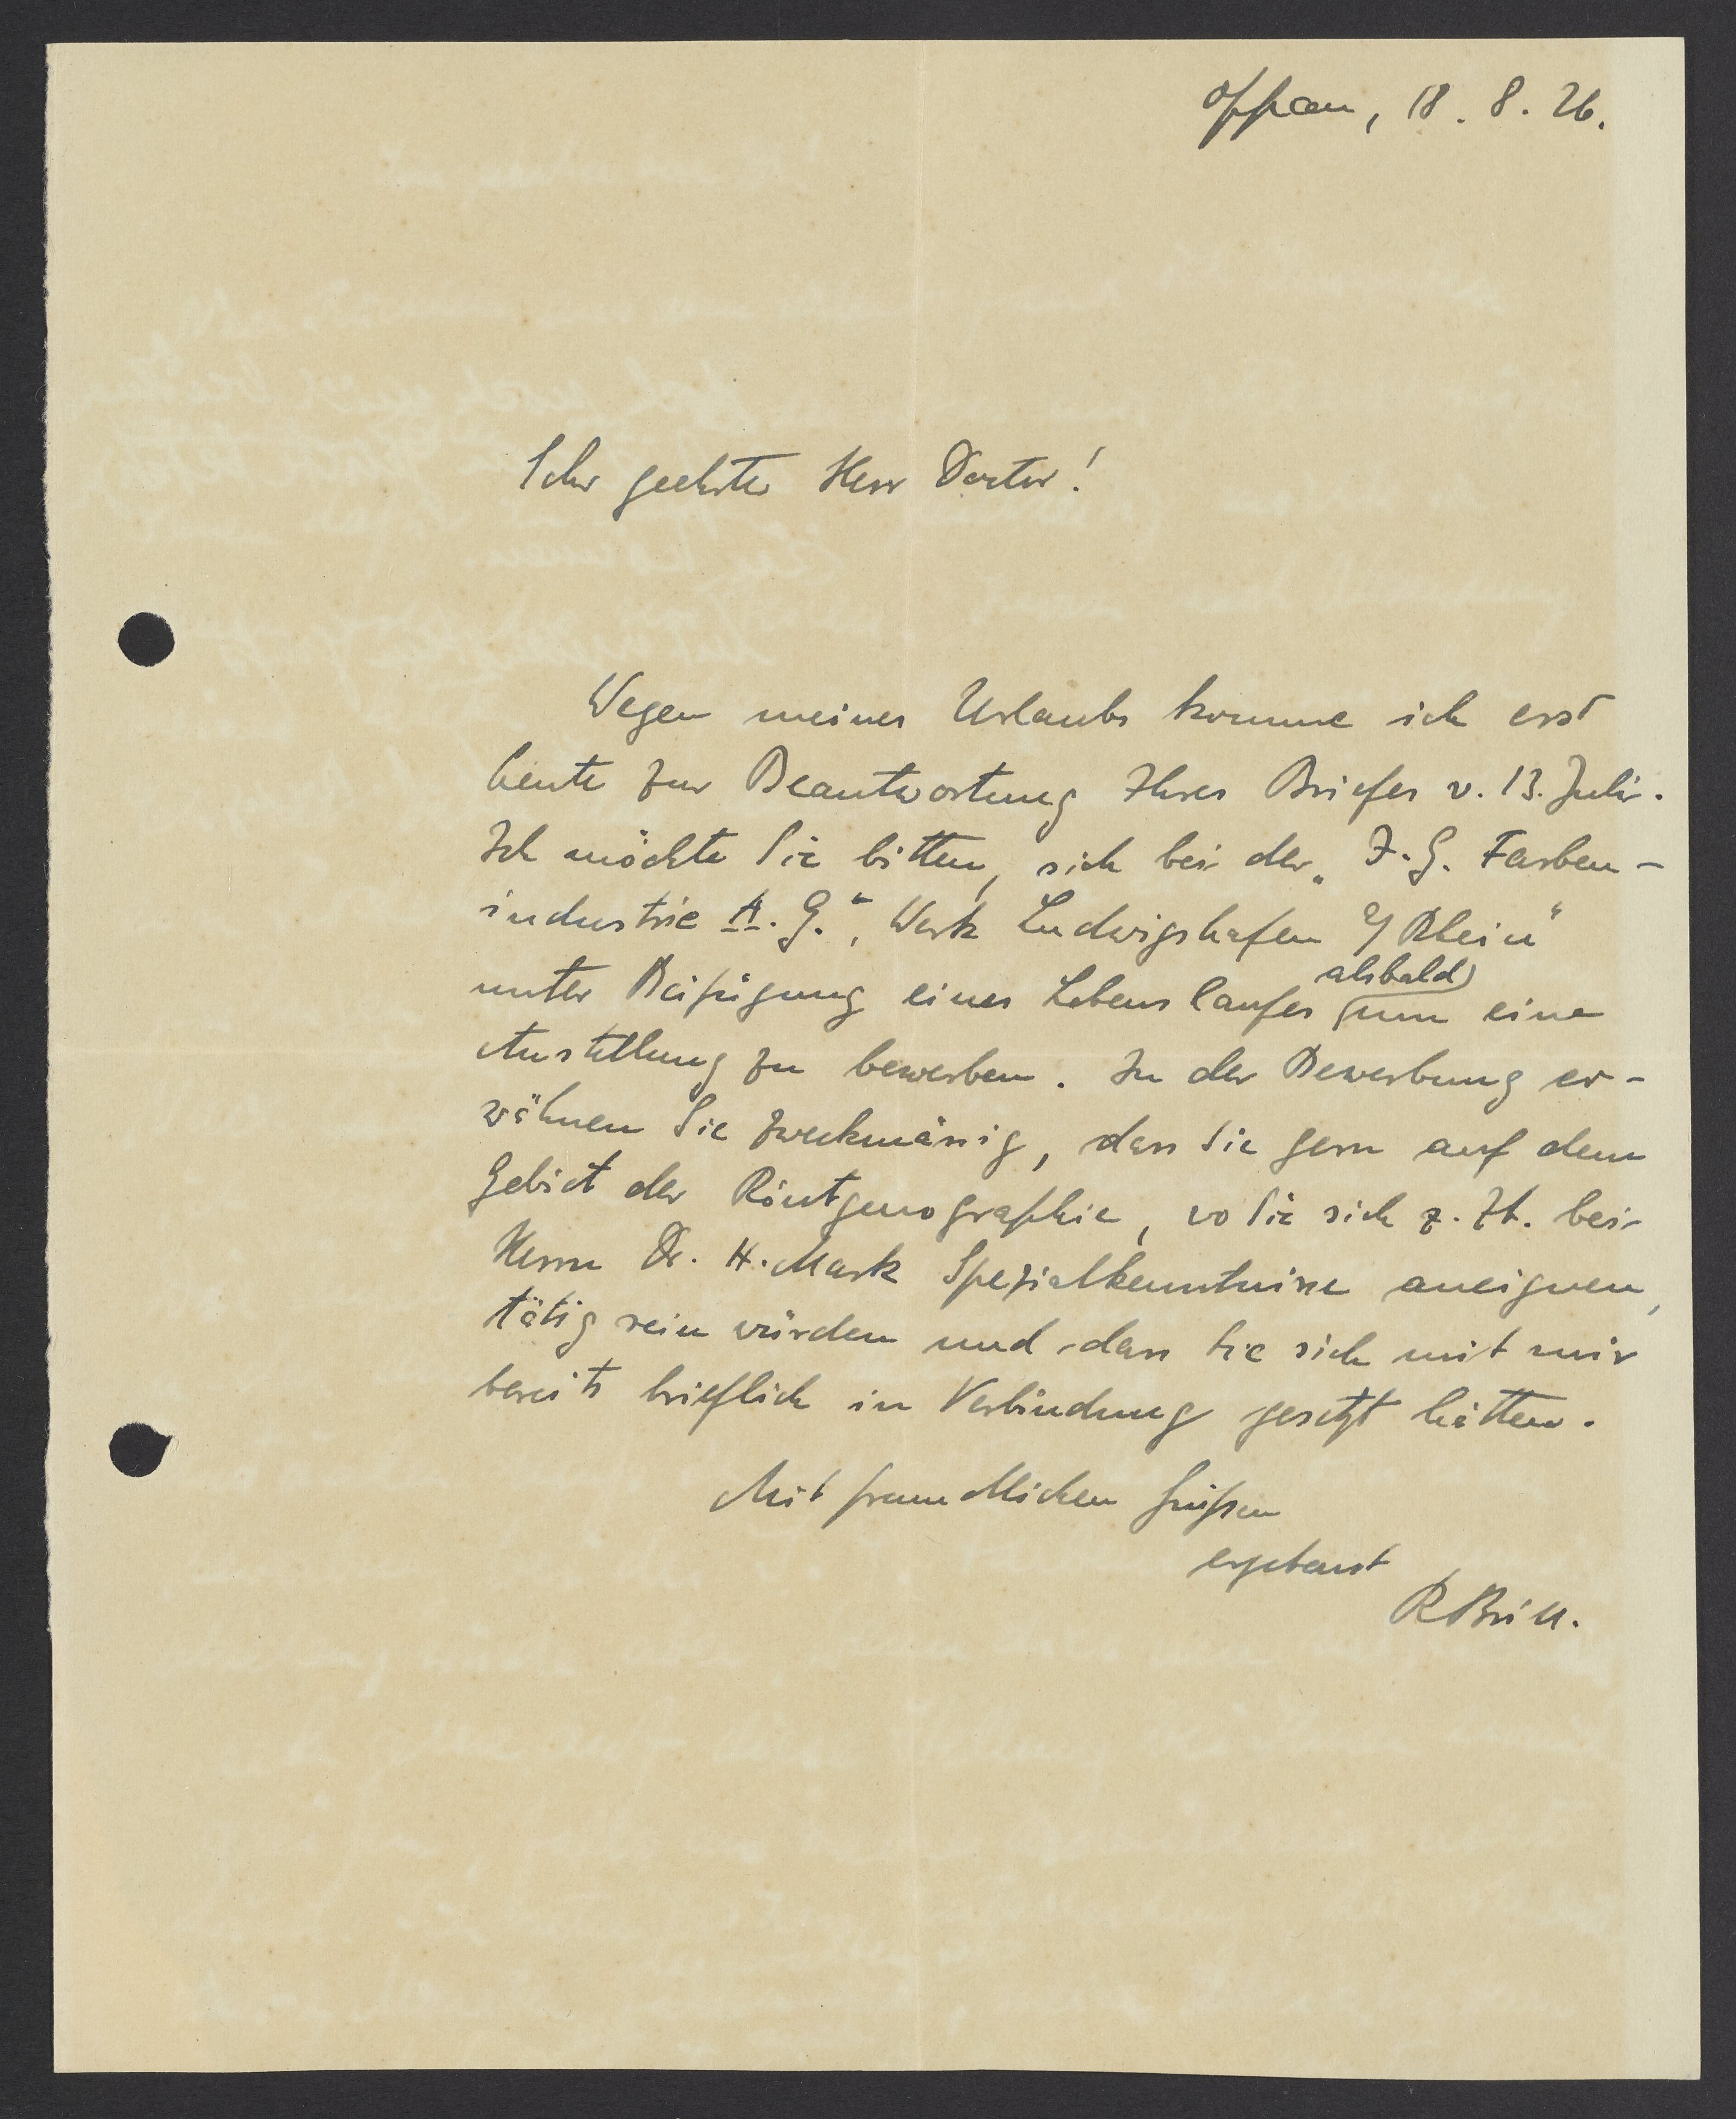 Oppau, 18. 8. 26.
Sehr geehrter Herr Doctor!
Wegen meines Urlaubs komme ich erst
heute zur Beantwortung Ihres Briefes v. 13. Juli.
Ich möchte Sie bitten, sich bei der „I. G. Farben-
industrie A. G.“, Werk Ludwigshafen a/Rhein“
unter Beifügung eines Lebenslaufes alsbald um eine
Anstellung zu bewerben. In der Bewerbung er-
wähnen Sie zweckmässig, dass Sie gern auf dem
Gebiet der Röntgenographie, wo Sie sich z. Zt. bei
Herrn Dr. H. Mark Spezialkenntnisse aneignen,
tätig sein würden und dass Sie sich mit mir
bereits brieflich in Verbindung gesetzt hätten.
Mit freundlichen Grüßen
ergebenst
R Brill.